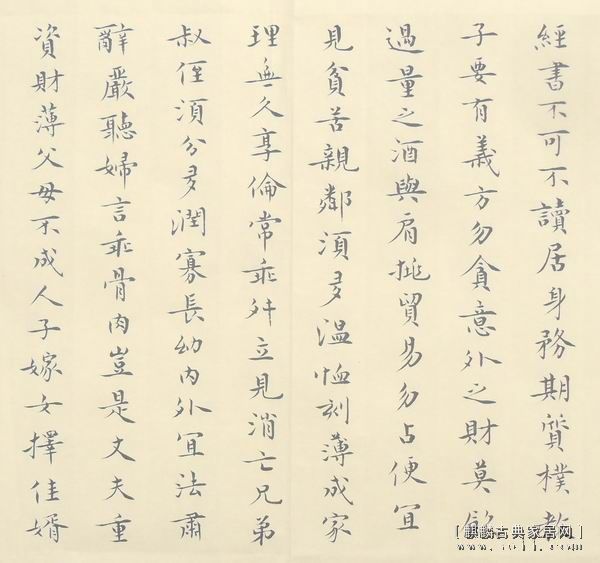 經書不可不讀居身務期質樸教
子要有義方勿貪意外之財莫飲
過量之酒與肩挑貿易勿占便宜
見貧苦親鄰湏多溫恤刻薄成家
理無久享倫常乖舛立見消亡兄弟
叔侄湏分多潤寡長幼內外宜法肅
辭嚴聽婦言乖骨肉豈是丈夫重
資財薄父母不成人子嫁女擇佳婿
[麒麟古典家居网]